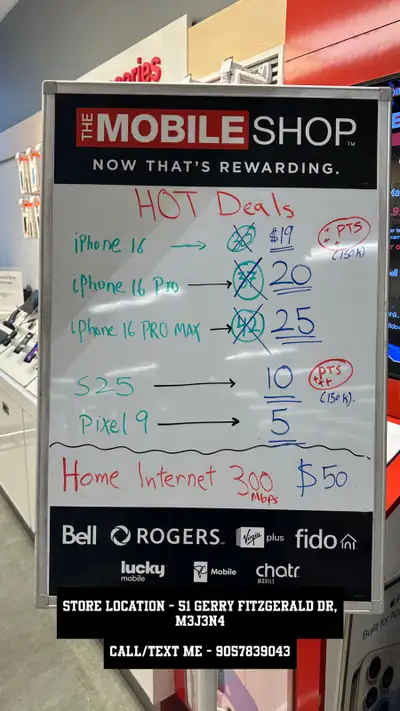 accessories
THE MOBILE SHOP™
NOW THAT'S REWARDING.
HOT Deals
iPhone 16 → $19 + PTS
(150K)
iPhone 16 Pro → 20
iPhone 16 PRO MAX → 42 25
S25 → 10 + PTS
++
(150K).
Pixel 9 → 5
Home Internet 300 Mbps $50
Bell ROGERS Virgin plus fido
lucky mobile PC Mobile chatr MOBILE
STORE LOCATION - 51 GERRY FITZGERALD DR,
M3J3N4
CALL/TEXT ME - 9057839043
Built for